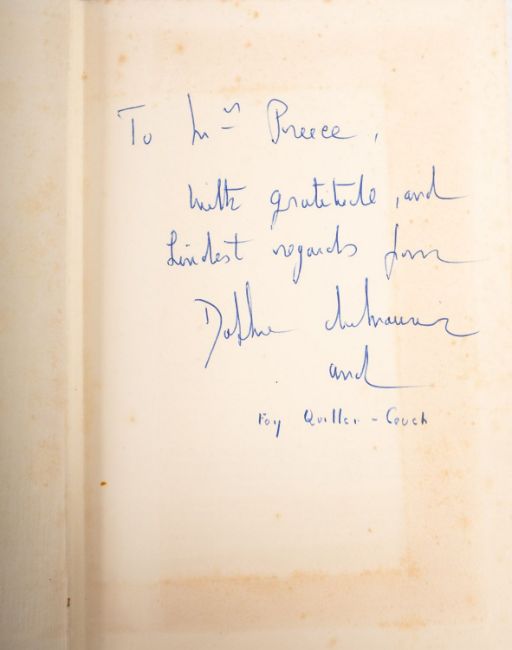 To Mrs Preece,
with gratitude, and
kindest regards from
Daphne du Maurier
and
Foy Quiller-Couch